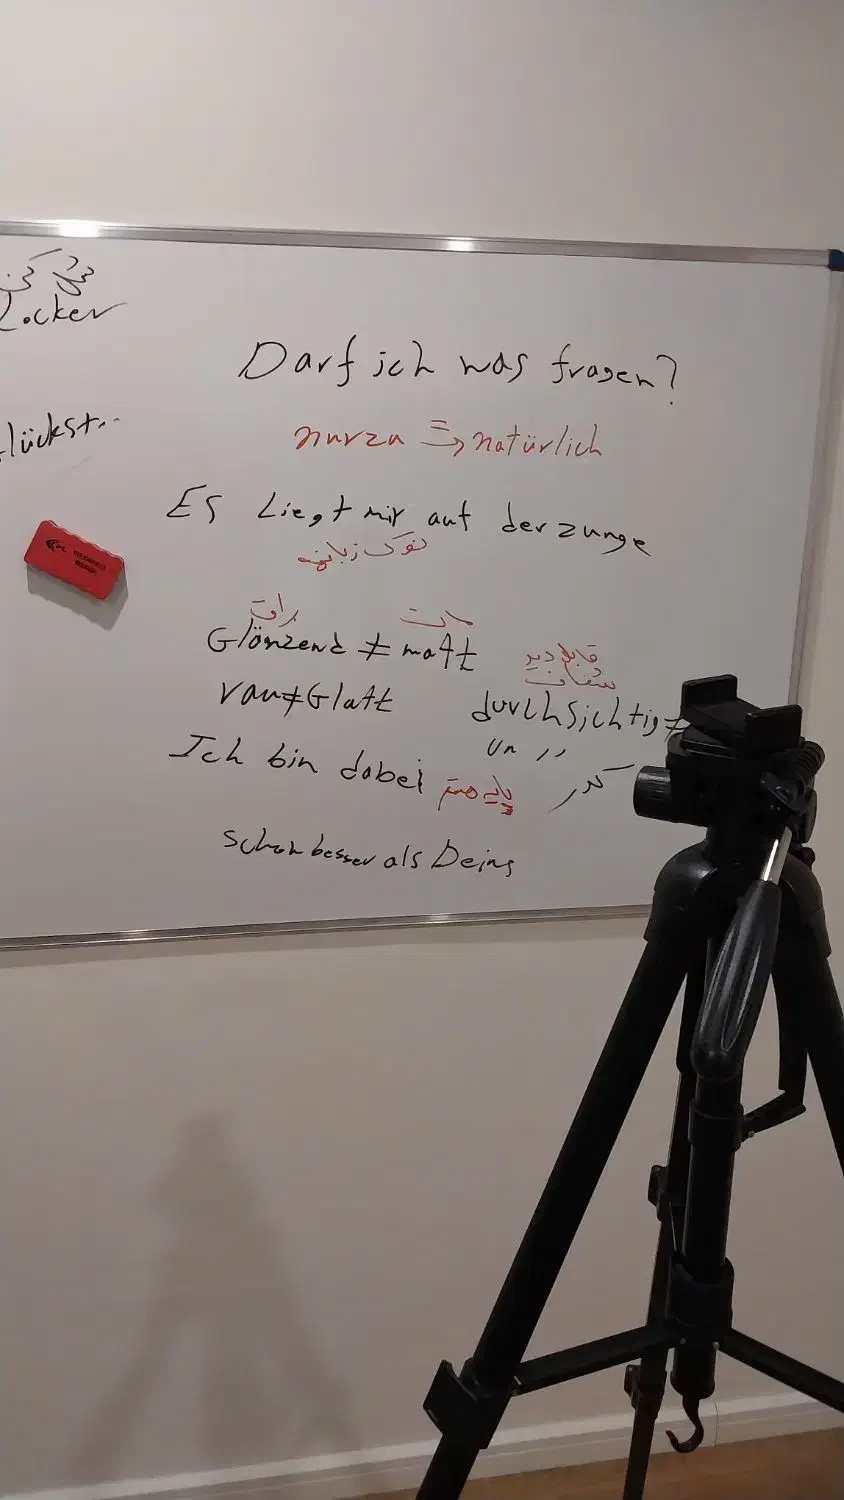 شل کن
Locker
lückst..
Darf ich was fragen?
nurzu => natürlich
Es Liegt mir auf der zunge
نوک زبانمه
براق مات
Glänzend ≠ matt
قابل دید
شفاف
rau≠Glatt
durchsichtig≠
un ,,
Ich bin dabei پایه هستم
کدر
schon besser als Deins